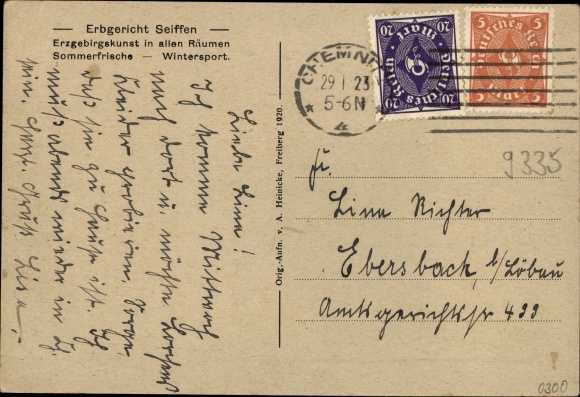 Erbgericht Seiffen
Erzgebirgskunst in allen Räumen
Sommerfrische — Wintersport.
Liebe Lina!
Ich komme Mittwoch
nach dort u. möchte
Kleider probieren.
daß sie zu Hause ist. Ich
muß abends wieder in
sein. Herzl. Gruß Lisa.
Orig.-Aufn. v. A. Heinicke, Freiberg 1920.
CHEMNI
29 1 23
5-6N
20
Deutsches Reich
20
Mark
5
Deutsches Reich
5
Mark
9335
Fr.
Lina Richter
Ebersbach b/Löbau
Amtsgerichtsstr 433
0300